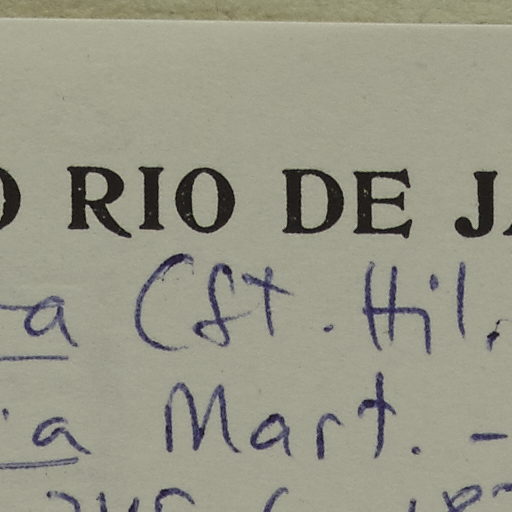 O RIO DE JA
a (St. Hil.
ia Mart. -